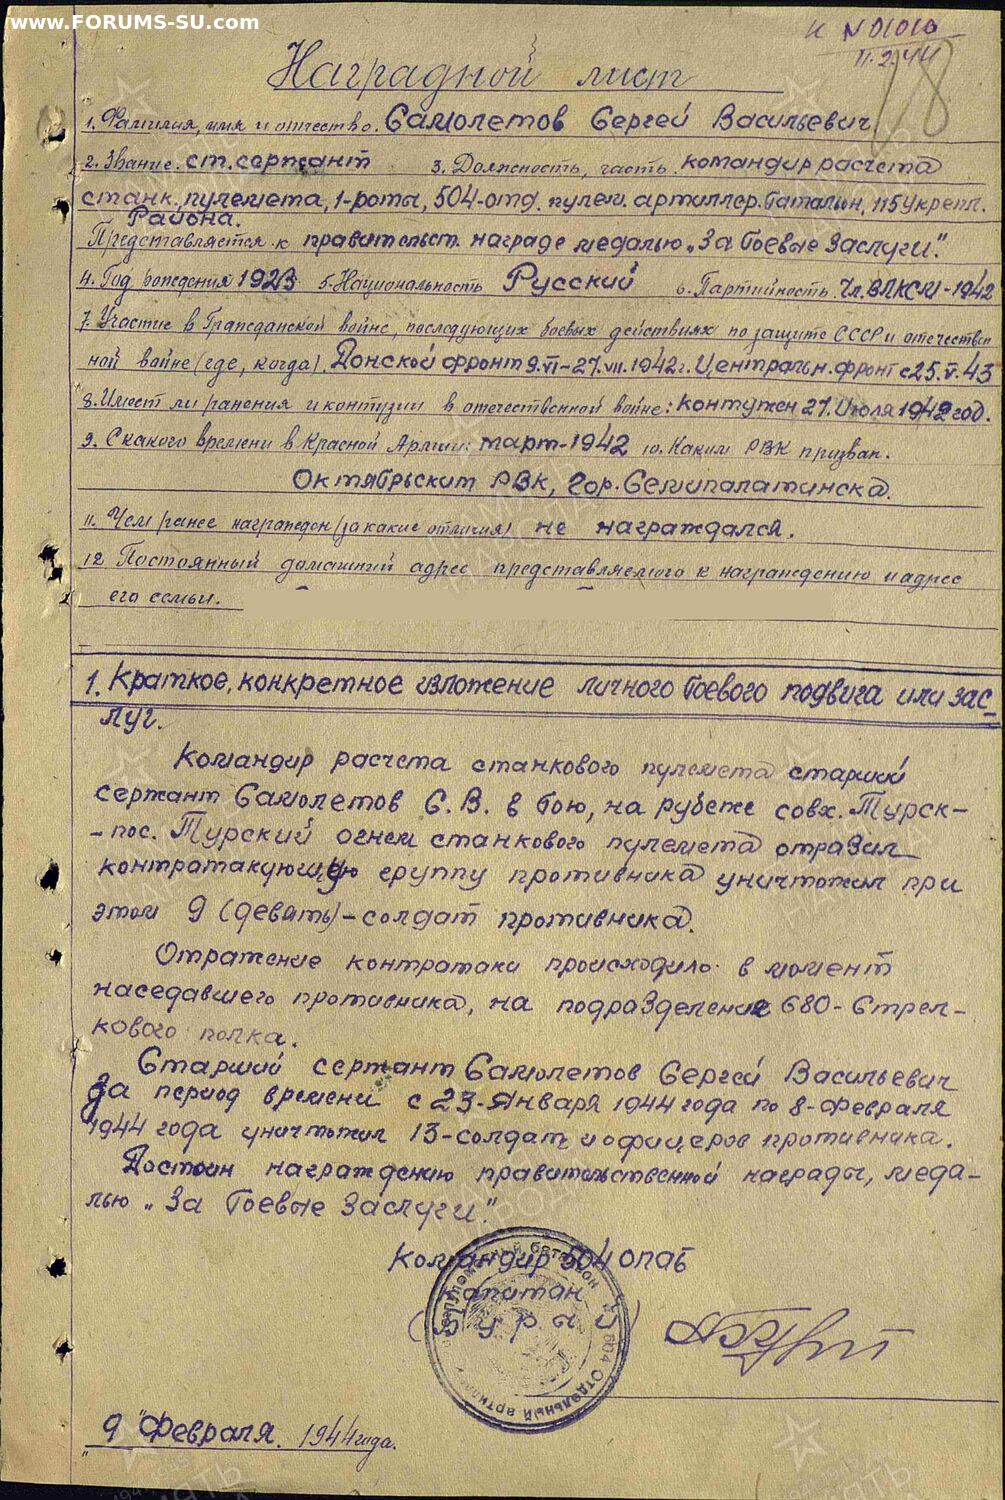 www.FORUMS-SU.com
к №01010
11.2.44
18
Наградной лист
1. Фамилия, имя и отчество. Самолетов Сергей Васильевич
2. Звание. ст. сержант 3. Должность, часть. командир расчета
станк. пулемета, 1-роты, 504-отд. пулем. артиллер. баталион, 115 Укрепл.
Района.
Представляется к правительст. награде медалью „За боевые Заслуги".
4. Год рождения 1923 5. Национальность Русский 6. Партийность Чл. ВЛКСМ-1942
7. Участие в Гражданской войне, последующих боевых действиях по защите СССР и отечествен
ной войне (где, когда). Донской фронт 9.VI-27.VII.1942г. Центральн. фронт с 25.V.43
8. Имеет ли ранения и контузии в отечественной войне: контужен 27. Июля 1942 год.
9. С какого времени в Красной Армии: март-1942 10. Каким РВК призван.
Октябрьским РВК, Гор. Семипалатинска.
11. Чем ранее награжден (за какие отличия) не награждался.
12 Постоянный домашний адрес представляемого к награждению и адрес
его семьи.
1. Краткое, конкретное изложение личного боевого подвига или зас-
луг.
Командир расчета станкового пулемета старший
сержант Самолетов С. В. в бою, на рубеже совх. Турск-
-пос. Турский огнем станкового пулемета отразил
контратакующую группу противника уничтожил при
этом 9 (девять)-солдат противника.
Отражение контратаки происходило в момент
наседавшего противника, на подразделение 680-Стрел-
кового полка.
Старший сержант Самолетов Сергей Васильевич
За период времени с 23-Января 1944 года по 8-Февраля
1944 года уничтожил 13-солдат и офицеров противника.
Достоин награждению правительственной награды, меда-
лью „За боевые Заслуги".
Командир 504 ОПАБ
Капитан
(Бурай)
504 Отдельный артил
пулеметный батальон
9 "Февраля. 1944 года.